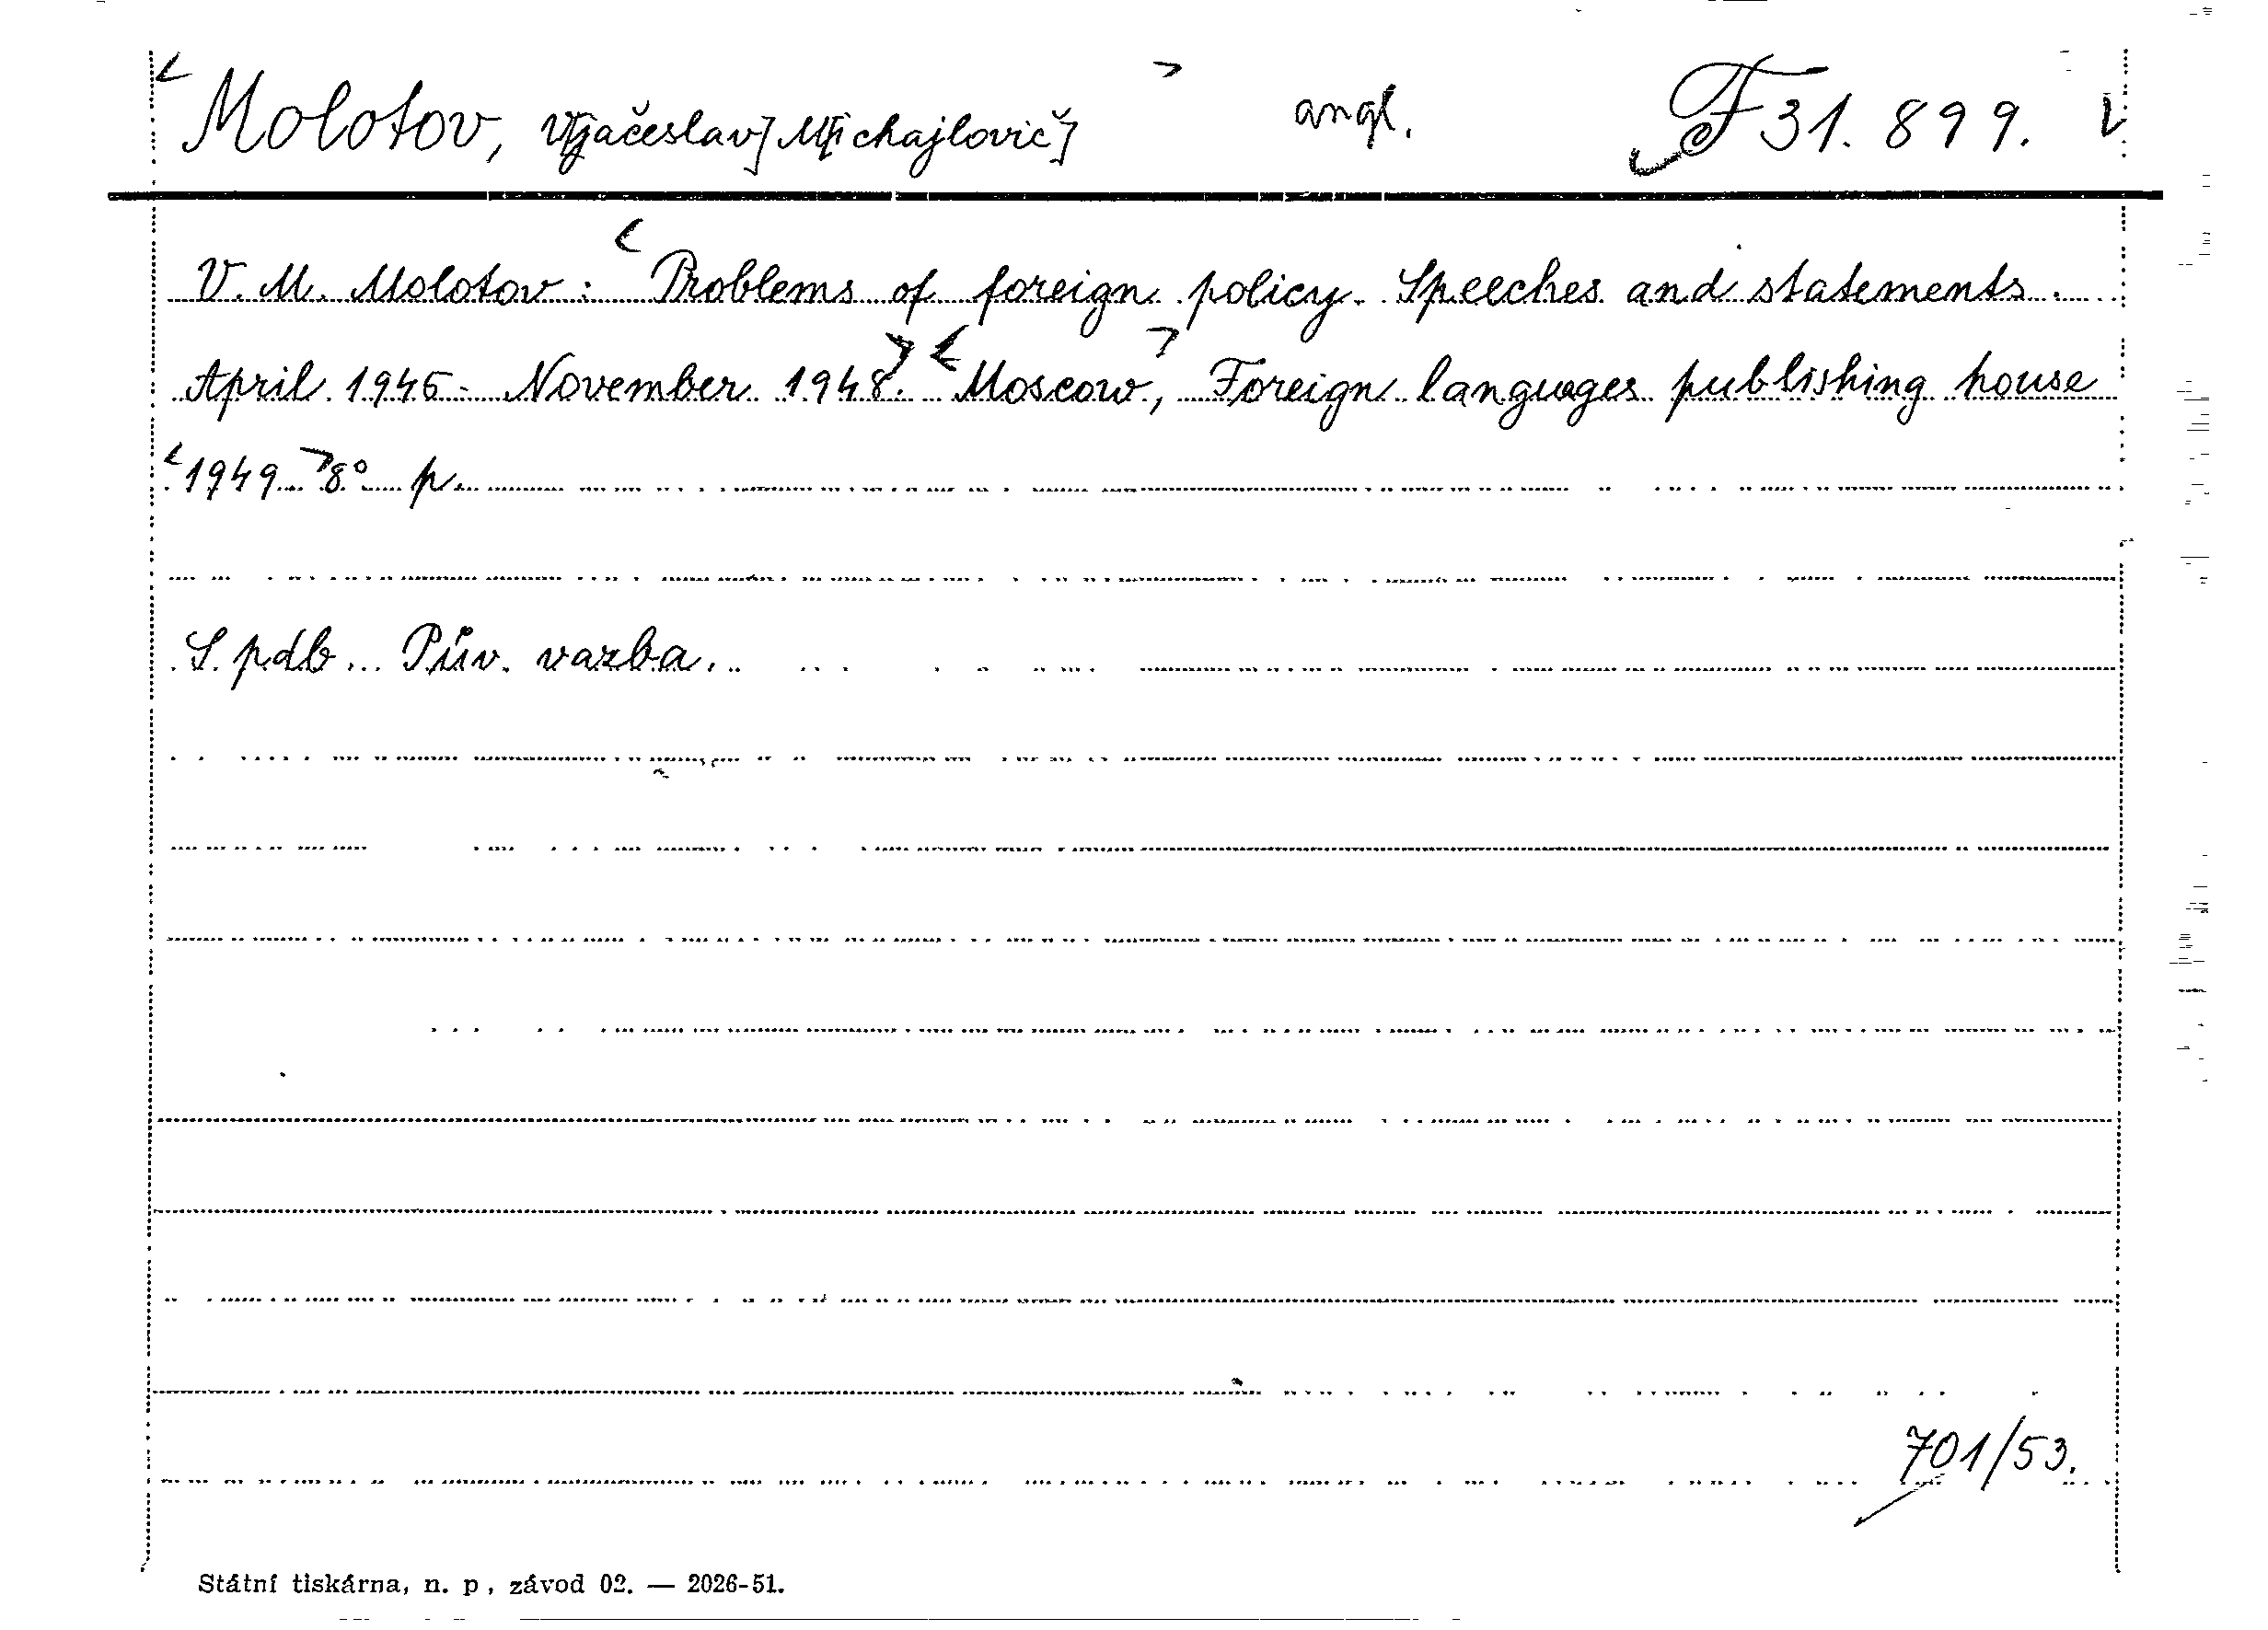 Molotov, V[jačeslav] M[ichajlovič] angl. F 31.899.
V. M. Molotov: Problems of foreign policy. Speeches and statements.
April 1945 - November 1948. Moscow, Foreign languages publishing house
1949. 8° p.
S. pdb. Pův. vazba.
701/53.
Státní tiskárna, n. p., závod 02. — 2026-51.